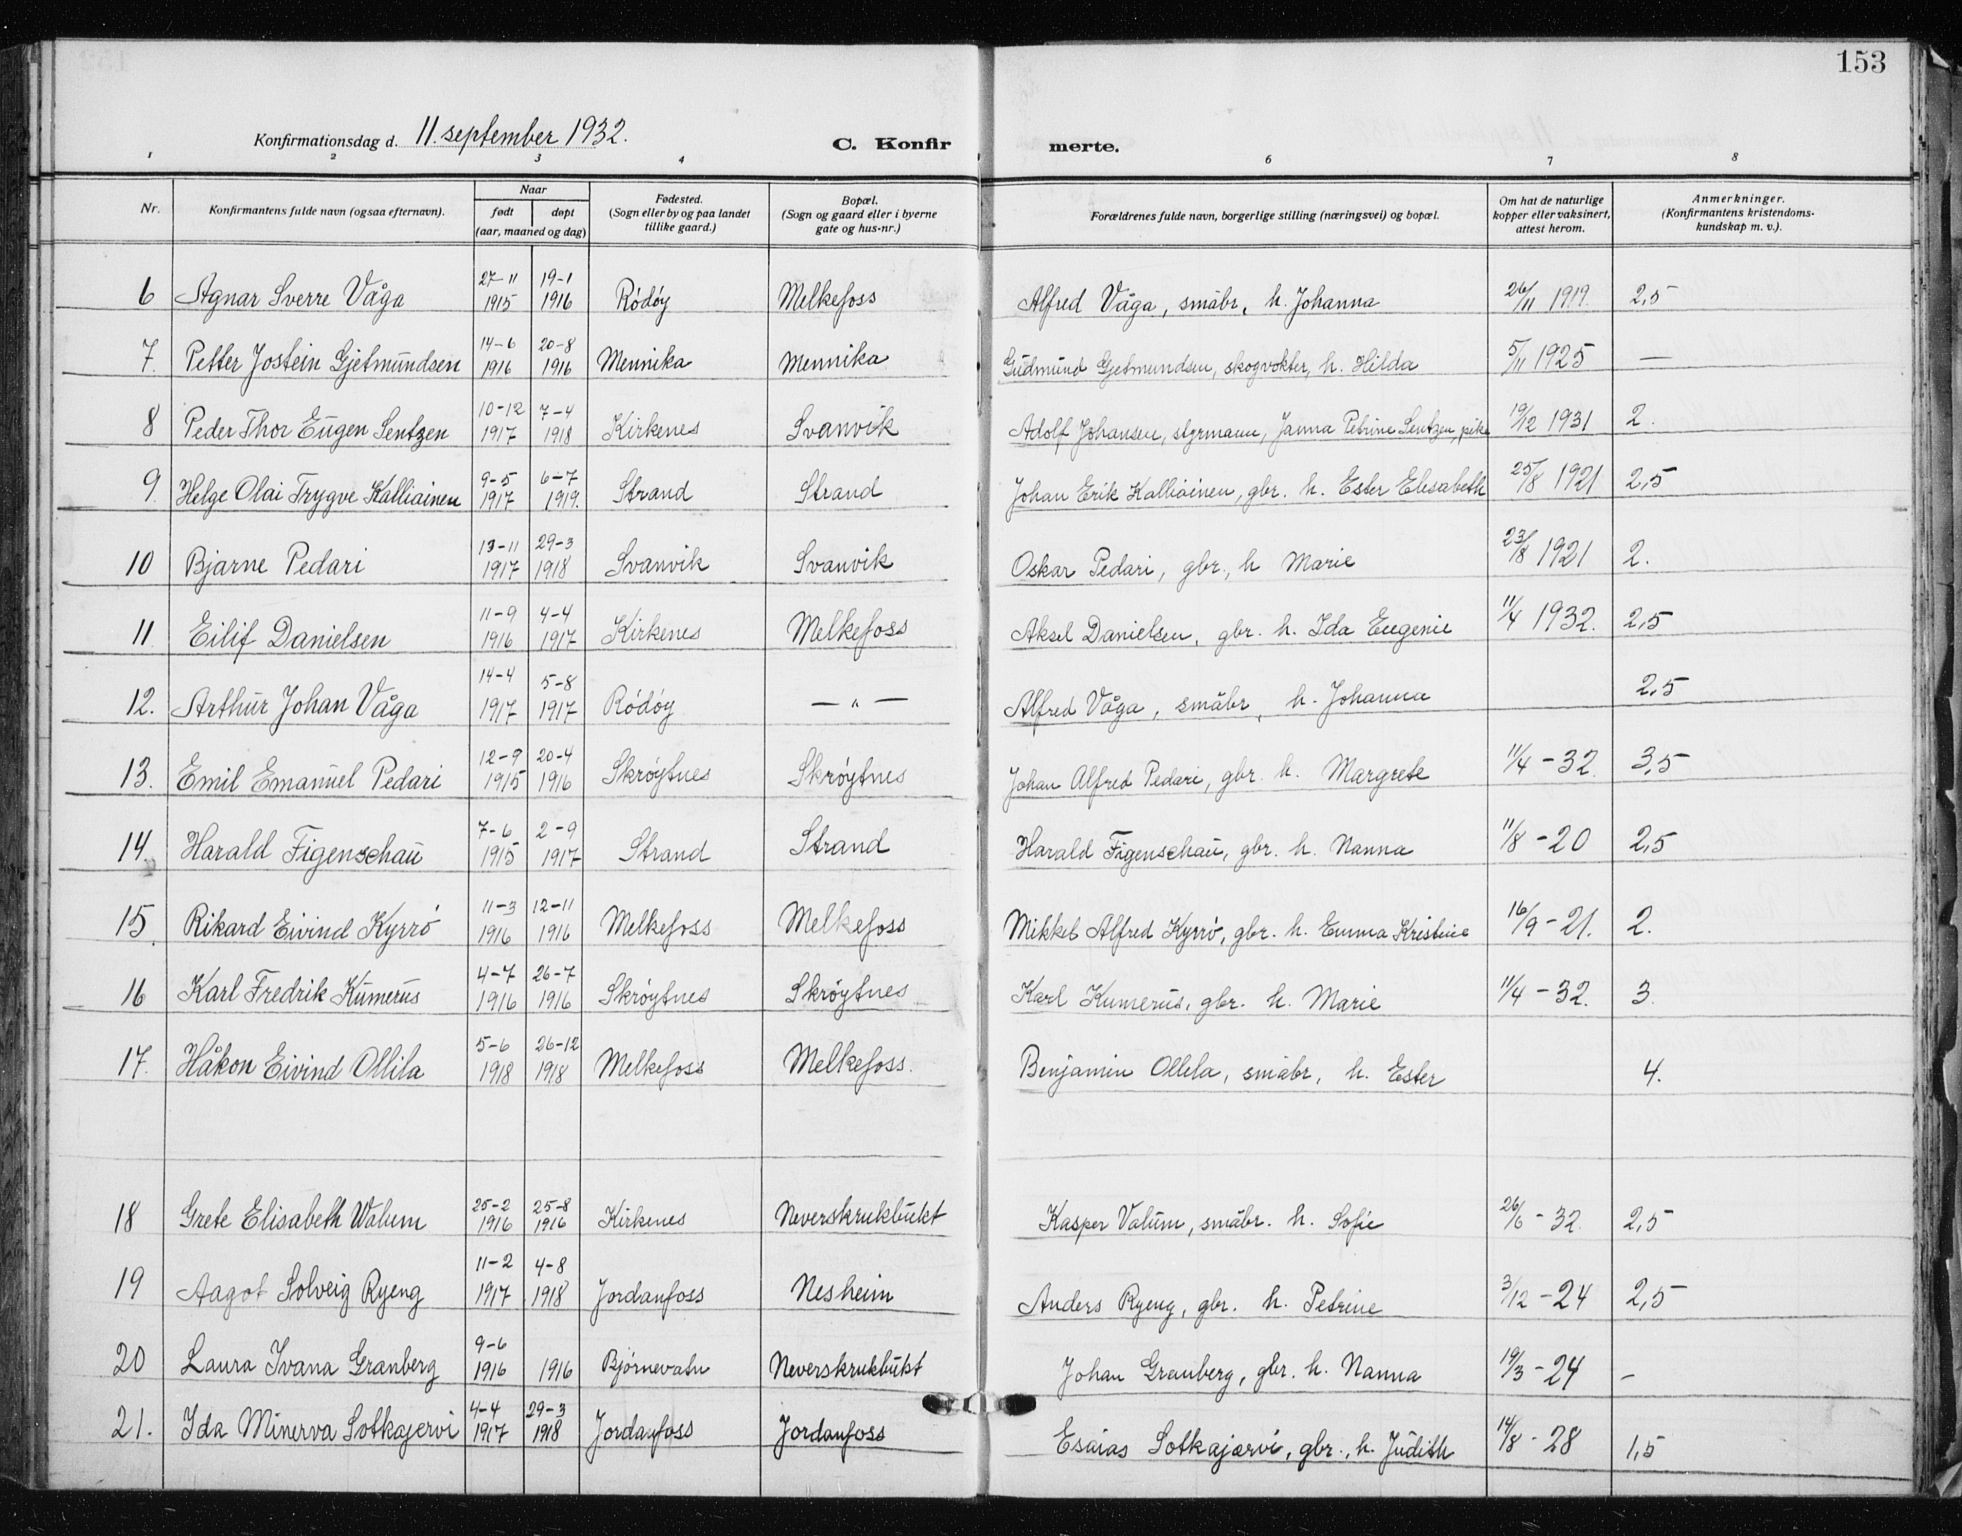 153
Konfirmationsdag d. 11. september 1932.
C. Konfir merte.
1 2 3 4 6 7 8
Nr.
Konfirmantens fulde navn (ogsaa efternavn).
Naar
født døpt
(aar, maaned og dag)
Fødested.
(Sogn eller by og paa landet
tillike gaard.)
Bopæl.
(Sogn og gaard eller i byerne
gate og hus-nr.)
Forældrenes fulde navn, borgerlige stilling (næringsvei) og bopæl.
Om hat de naturlige
kopper eller vaksinert,
attest herom.
Anmerkninger.
(Konfirmantens kristendoms-
kundskap m. v.).
27-11 19-1
6 Agnar Sverre Våga 1915 1916 Rödöy Melkefoss Alfred Våga, småbr. h. Johanna 26/11 1919. 2,5
14-6 20-8
7. Petter Jostein Gjetmundsen 1916 1916 Mennika Mennika Gudmund Gjetmundsen, skogvokter, h. Hilda 5/11 1925 —
10-12 7-4
8 Peder Thor Eugen Sentzen 1917 1918 Kirkenes Svanvik Adolf Johansen, styrmann, Janna Petrine Sentzen, pike 19/12 1931 2.
9-5 6-7
9. Helge Olai Trygve Kalliainen 1917 1919. Strand Strand Johan Erik Kalliainen, gbr. h. Ester Elisabeth 25/8 1921 2,5
13-11 29-3
10 Bjarne Pedari 1917 1918 Svanvik Svanvik Oskar Pedari, gbr., h Marie 23/8 1921 2.
11-9 4-4
11. Eilif Danielsen 1916 1917 Kirkenes Melkefoss Aksel Danielsen, gbr. h. Ida Eugenie 11/4 1932. 2,5
14-4 5-8
12. Arthur Johan Våga 1917 1917 Rödöy — " — Alfred Våga, småbr, h. Johanna 2,5
12-9 20-4
13. Emil Emanuel Pedari 1915 1916 Skröytnes Skröytnes Johan Alfred Pedari, gbr. h. Margrete 11/4 - 32. 3,5
7-6 2-9
14. Harald Figenschau 1915 1917 Strand Strand Harald Figenschau, gbr. h. Nanna 11/8 - 20 2,5
11-3 12-11
15. Rikard Eivind Kyrrö 1916 1916 Melkefoss Melkefoss Mikkel Alfred Kyrrö, gbr. h. Emma Kristine 16/9 - 21. 2.
4-7 26-7
16 Karl Fredrik Kumerus 1916 1916 Skröytnes Skröytnes Karl Kumerus, gbr. h. Marie 11/4 - 32. 3.
5-6 26-12
17. Håkon Eivind Ollila 1918 1918 Melkefoss Melkefoss. Benjamin Ollila, småbr, h. Ester 4.
25-2 25-8
18 Grete Elisabeth Walum 1916 1916 Kirkenes Neverskrukbukt Kasper Valum, småbr. h. Sofie 26/6 - 32. 2,5
11-2 4-8
19 Aagot Solveig Ryeng 1917 1918 Jordanfoss Nesheim Anders Ryeng, gbr. h. Petrine 3/12 - 24 2,5
9-6
20 Laura Ivana Granberg 1916 1916 Björnevatn Neverskrukbukt Johan Granberg, gbr. h. Nanna 19/3 - 24 -
4-4 29-3
21. Ida Minerva Sotkajervi 1917 1918 Jordanfoss Jordanfoss Esaias Sotkajærvi, gbr., h. Judith 14/8 - 28 1,5